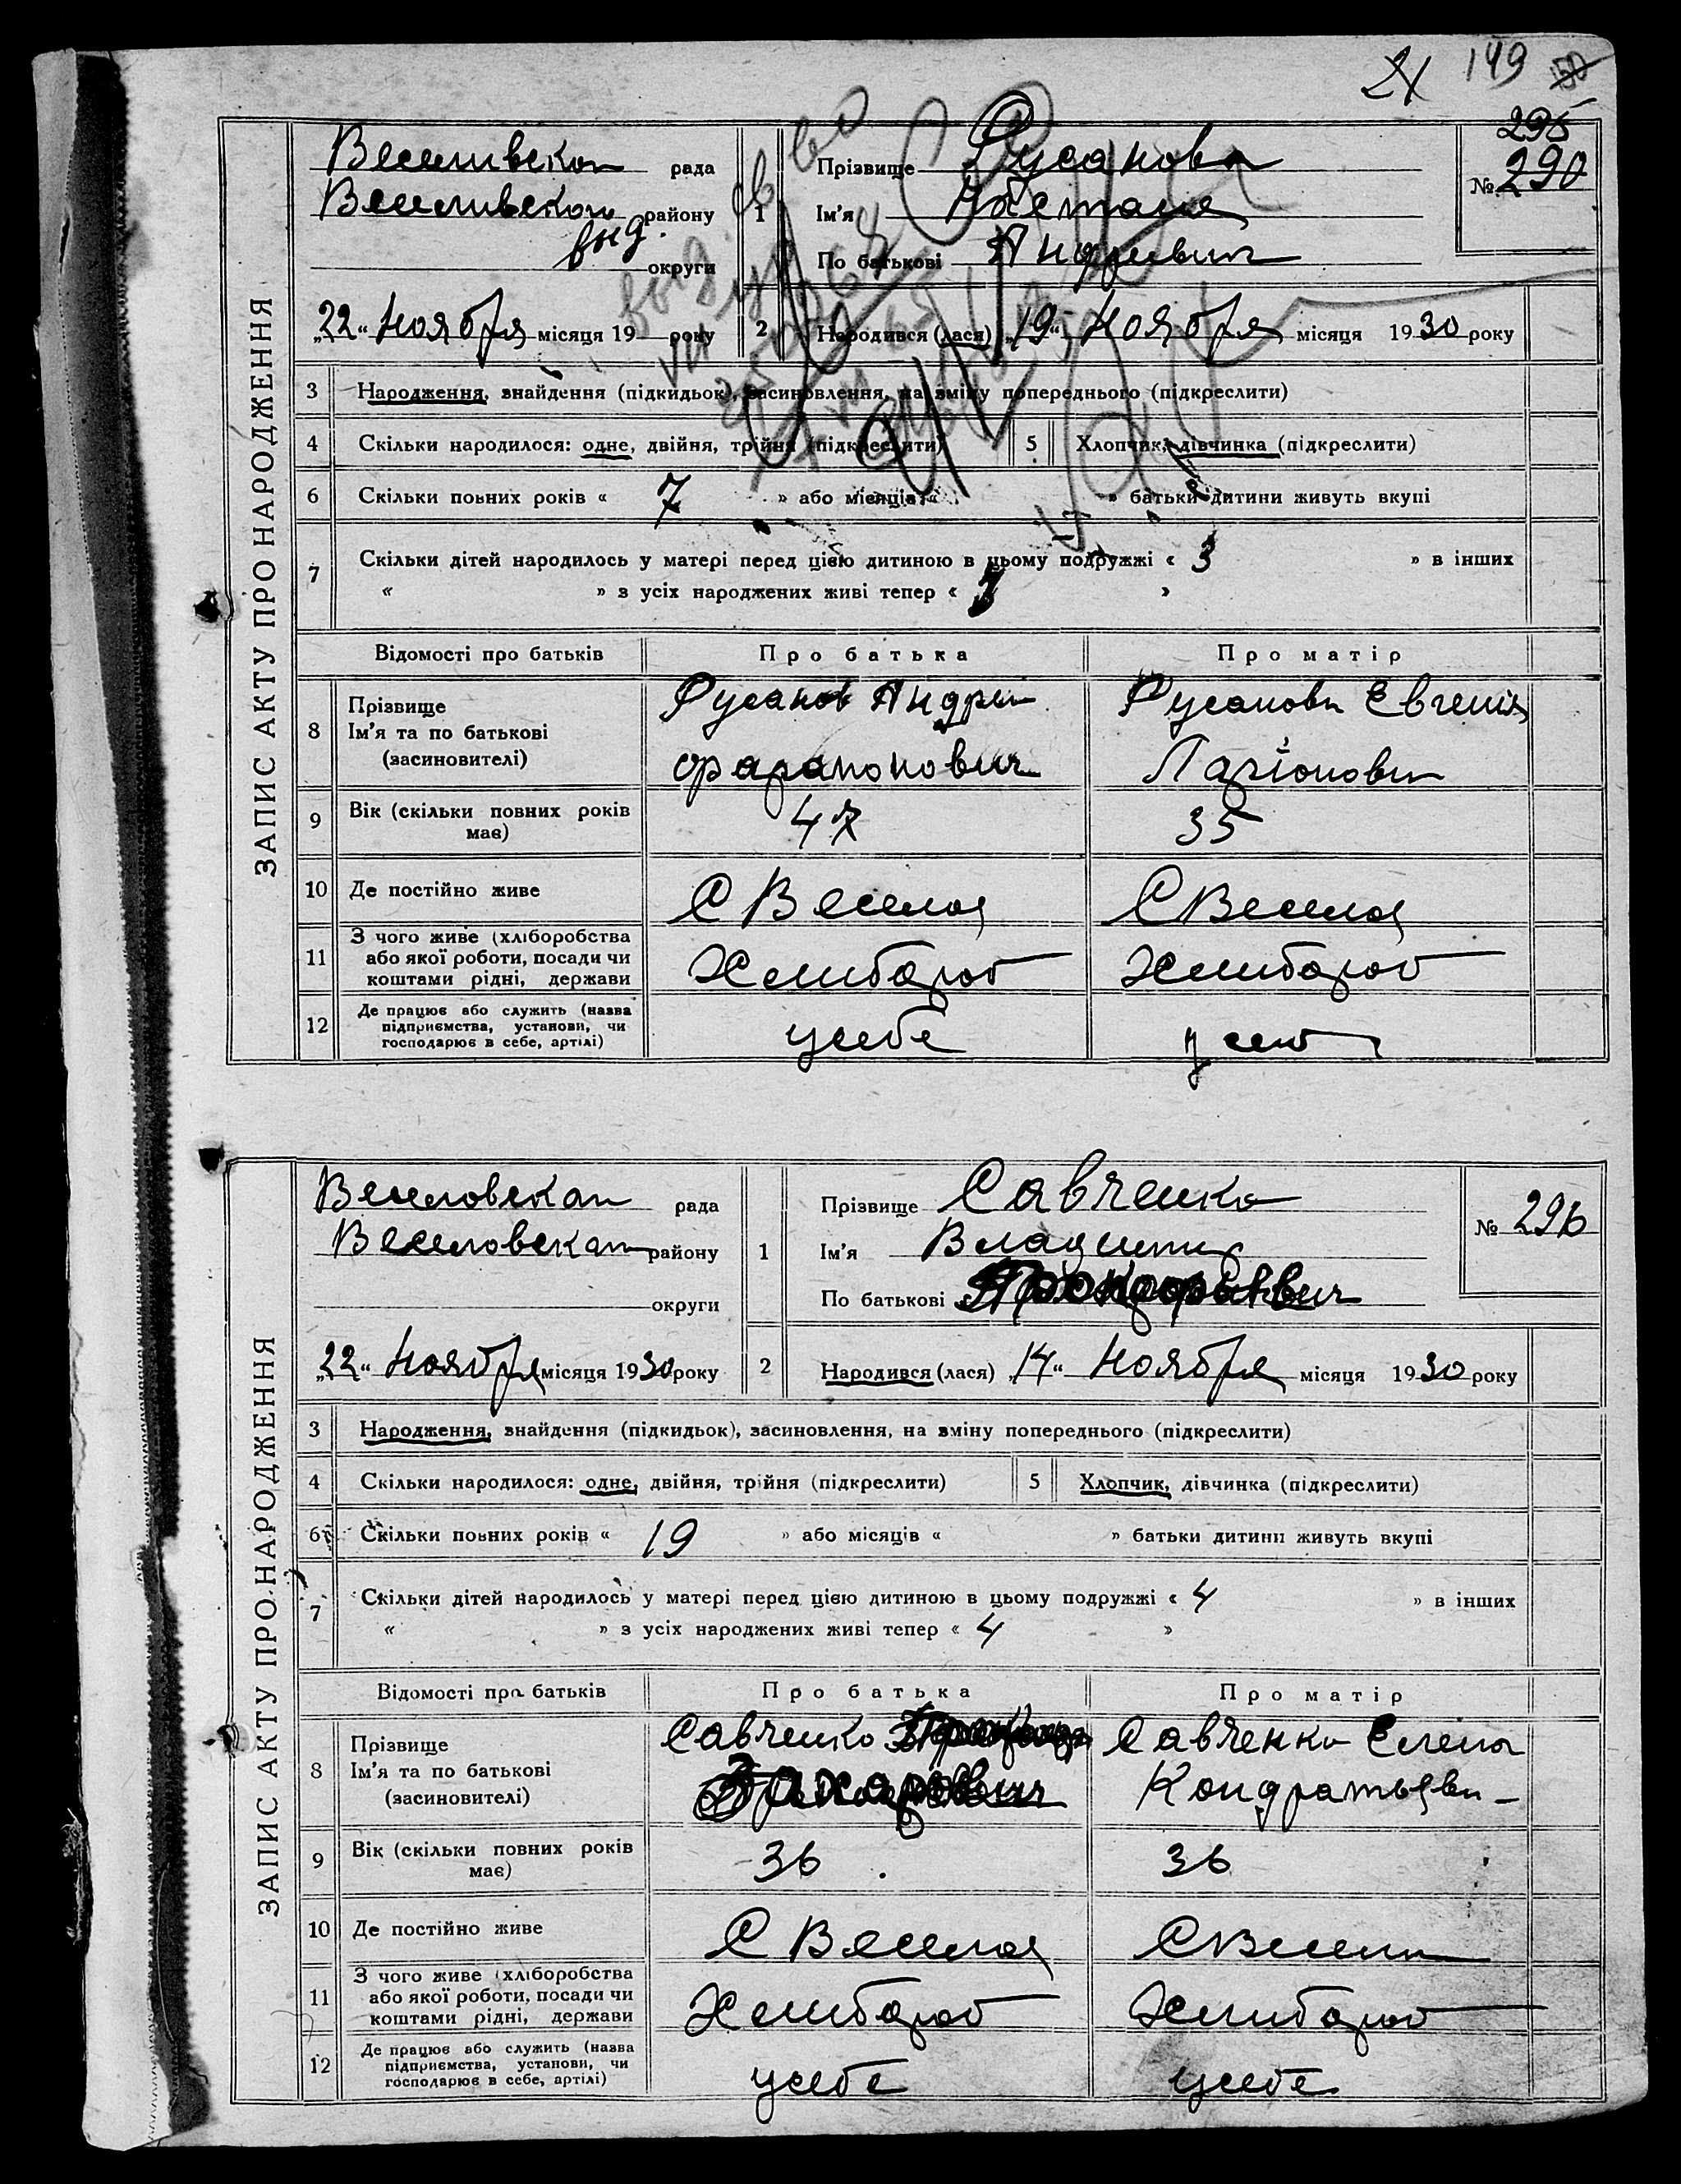 149 50
295
Веселивская рада
Веселивская району
выд.
округи
Прізвище Русанова
1
Ім'я
По батькові Андреевич
№ 290
„22“ Ноября місяця 19 року
2
Народився (лася) „19“ Ноября місяця 1930 року
ЗАПИС АКТУ ПРО НАРОДЖЕННЯ
3 Народження, знайдення (підкидьок), засиновлення, на зміну попереднього (підкреслити)
4 Скільки народилося: одне, двійня, трійня (підкреслити) 5 Хлопчик, дівчинка (підкреслити)
6 Скільки повних років « 7 » або місяців « » батьки дитини живуть вкупі
7 Скільки дітей народилось у матері перед цією дитиною в цьому подружжі « 3 » в інших
« » з усіх народжених живі тепер « »
Відомості про батьків Про батька Про матір
8 Прізвище Ім'я та по батькові (засиновителі)
Русанов Андрей Русанова Евгения
Ларіоновн
9 Вік (скільки повних років має) 47 35
10 Де постійно живе С Веселое С Веселое
11 З чого живе (хліборобства або якої роботи, посади чи коштами рідні, держави Хлибороб Хлибороб
12 Де працює або служить (назва підприємства, установи, чи господарює в себе, артілі) у себе у себе
Веселовская рада
Веселовская району
округи
1
Прізвище Савченко
Ім'я Владимир
По батькові
№ 296
„22“ Ноября місяця 1930 року
2
Народився (лася) „14“ Ноября місяця 1930 року
ЗАПИС АКТУ ПРО НАРОДЖЕННЯ
3 Народження, знайдення (підкидьок), засиновлення, на зміну попереднього (підкреслити)
4 Скільки народилося: одне, двійня, трійня (підкреслити) 5 Хлопчик, дівчинка (підкреслити)
6 Скільки повних років « 19 » або місяців « » батьки дитини живуть вкупі
7 Скільки дітей народилось у матері перед цією дитиною в цьому подружжі « 4 » в інших
« » з усіх народжених живі тепер « 4 »
Відомості про батьків Про батька Про матір
8 Прізвище Ім'я та по батькові (засиновителі)
Савченко Савченко Елена
Захарович Кондратьевн
9 Вік (скільки повних років має) 36 36
10 Де постійно живе С Веселое С Веселое
11 З чого живе (хліборобства або якої роботи, посади чи коштами рідні, держави Хлибороб Хлибороб
12 Де працює або служить (назва підприємства, установи, чи господарює в себе, артілі) у себе у себе